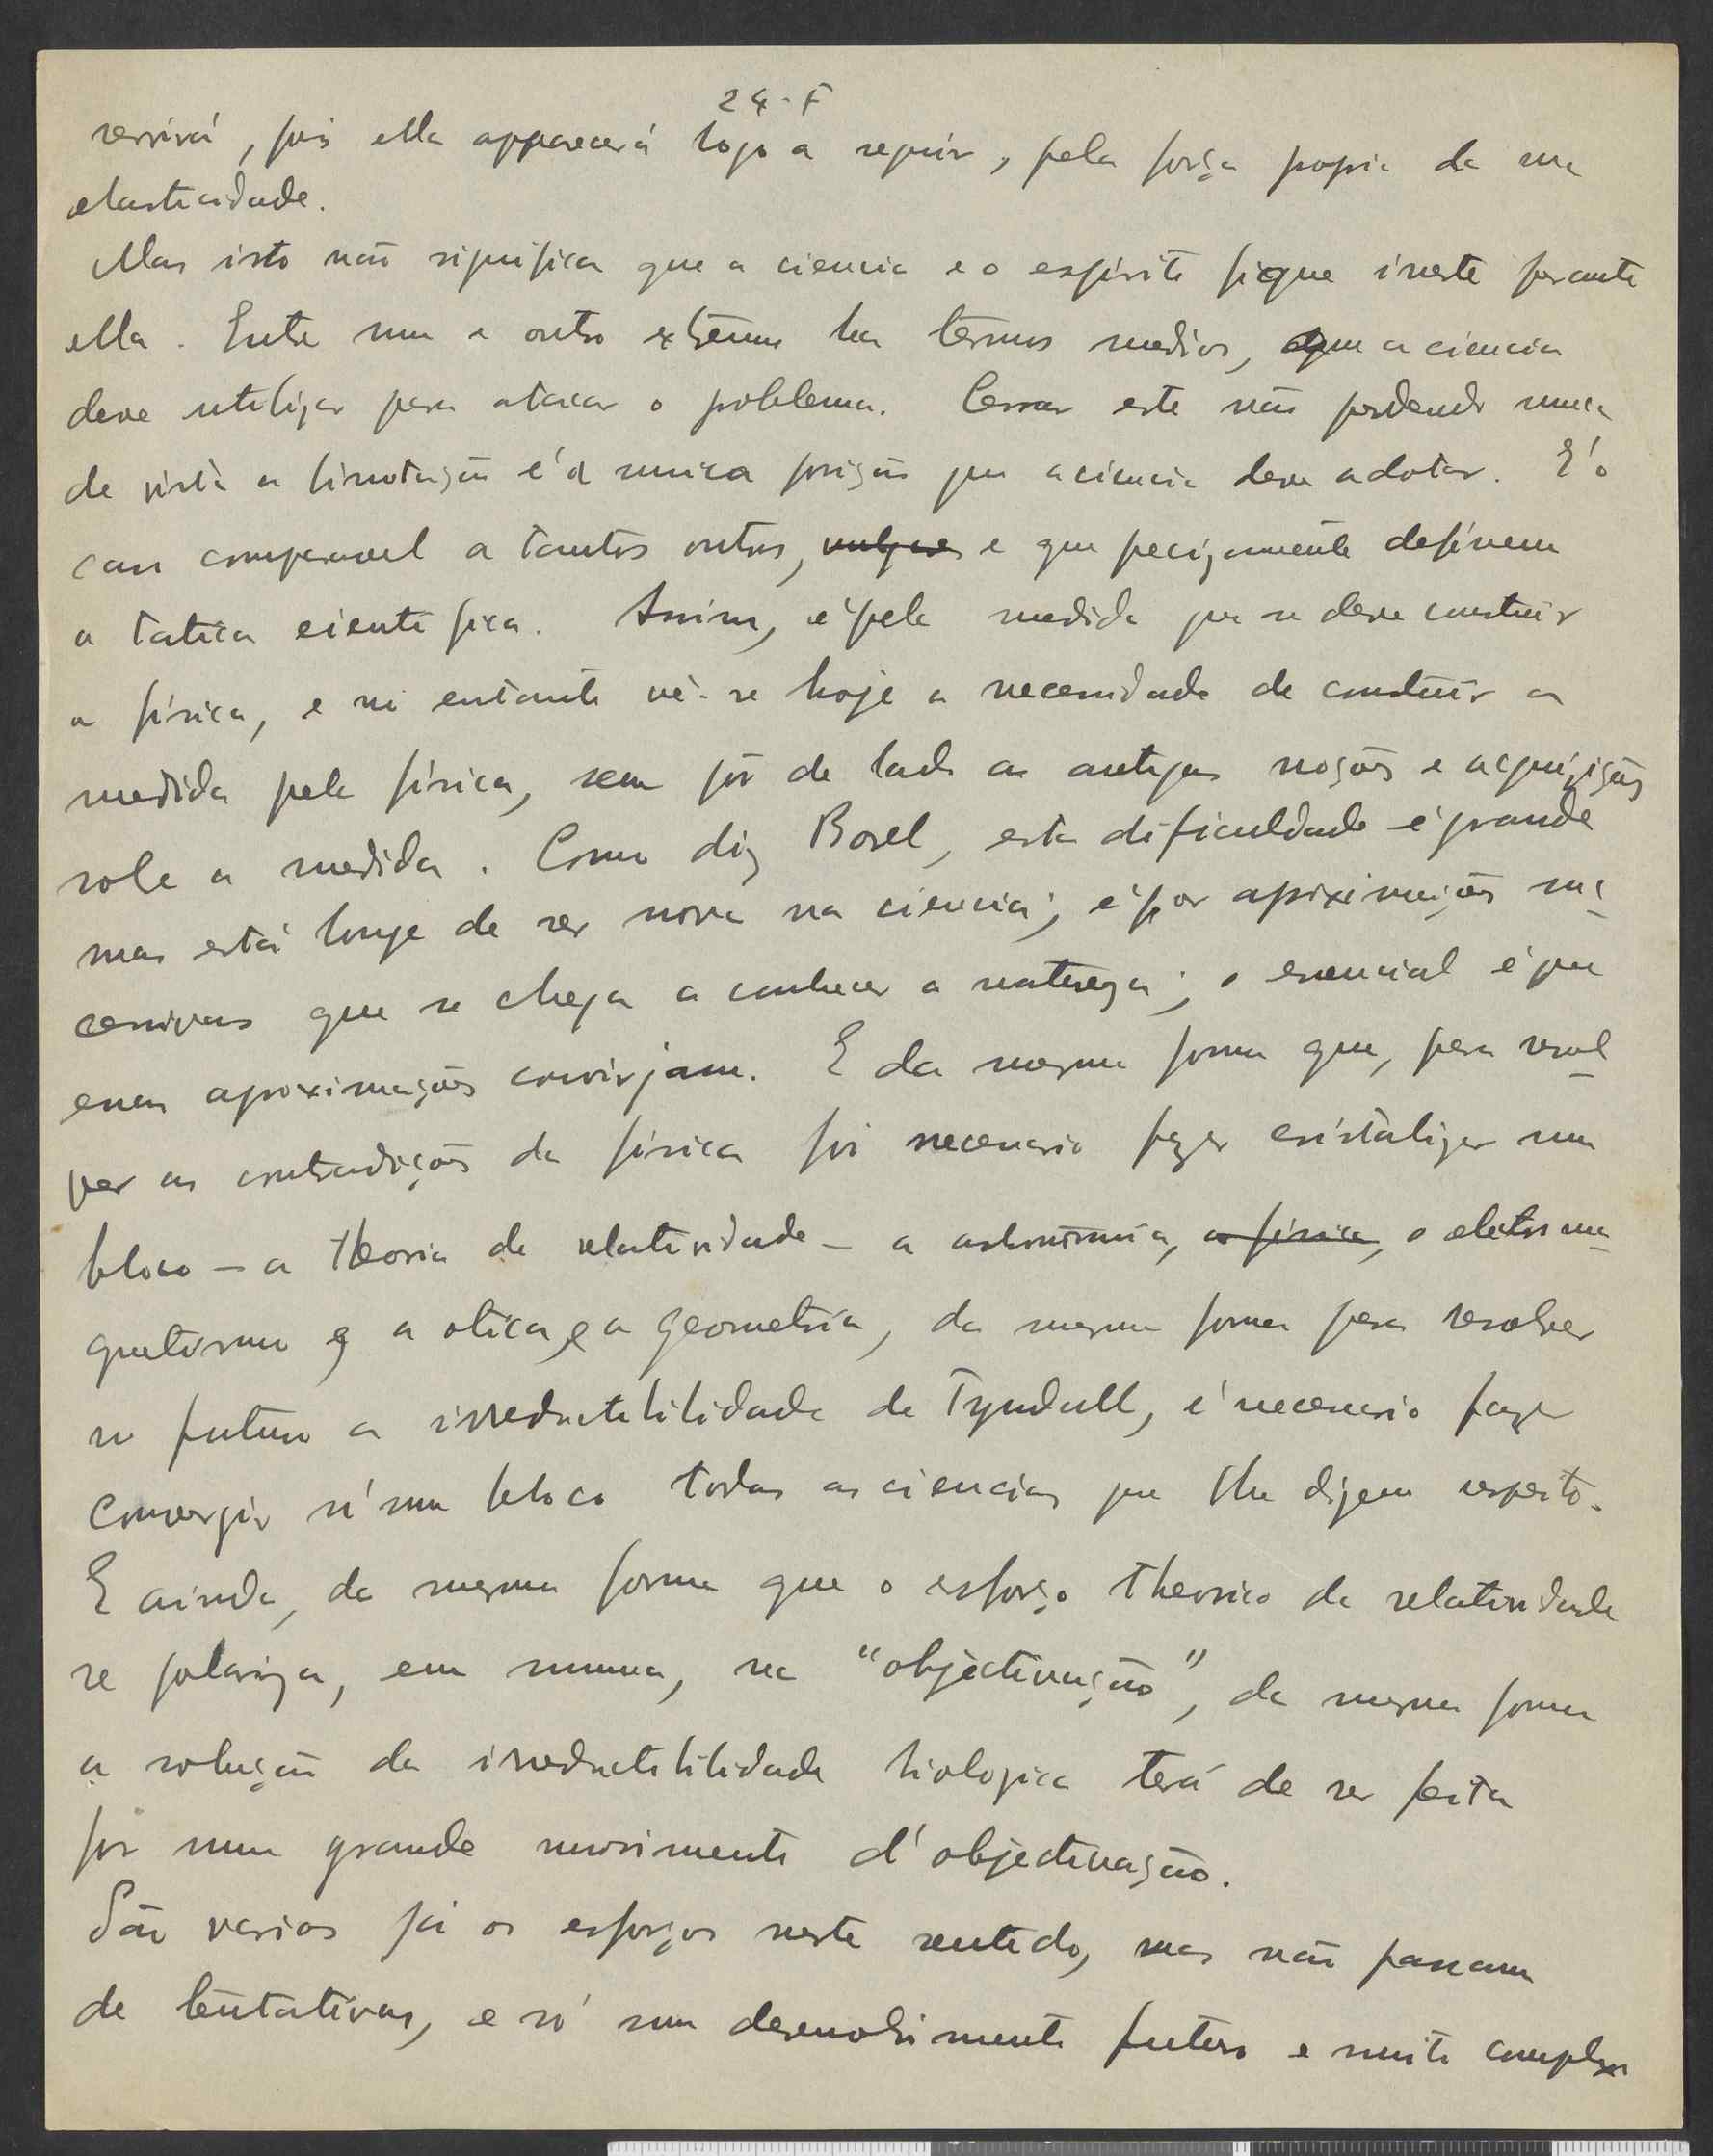 24-F
servirá, pois ella apparecerá logo a seguir, pela força propria da sua
elasticidade.
Mas isto não significa que a ciencia e o espirito fique inerte perante
ella. Entre um e outro extremo ha termos medios, que a ciencia
deve utilizar para atacar o problema. Cercar este não perdendo nunca
de vista a limitação é a unica posição que a ciencia deve adotar. E' o
caso comparavel a tantos outros, vulgares e que precizamente definem
a tatica cientifica. Assim, é pela medida que se deve construir
a física, e no entanto vê-se hoje a necessidade de construir a
medida pela física, sem pôr de lado as antigas noções e acquizições
sobre a medida. Como diz Borel, esta dificuldade é grande
mas está longe de ser nova na ciencia; é por aproximações su-
cessivas que se chega a conhecer a natureza; o essencial é que
essas aproximações convirjam. E da mesma forma que, para resol-
ver as contradições da física foi necessario fazer cristalizar num
bloco - a theoria da relatividade - a astronomia, a física, o eletroma-
gnetismo e a otica e a geometria, da mesma forma para resolver
no futuro a irreductibilidade de Tyndall, é necessario fazer
convergir n'um bloco todas as ciencias que lhe dizem respeito.
E ainda, da mesma forma que o esforço theorico da relatividade
se polariza, em summa, na "objectivação", da mesma forma
a solução da irreductibilidade biologica terá de ser feita
por um grande movimento d'objectivação.
São varios já os esforços neste sentido, mas não passam
de tentativas, e só um desenvolvimento futuro e muito complexo